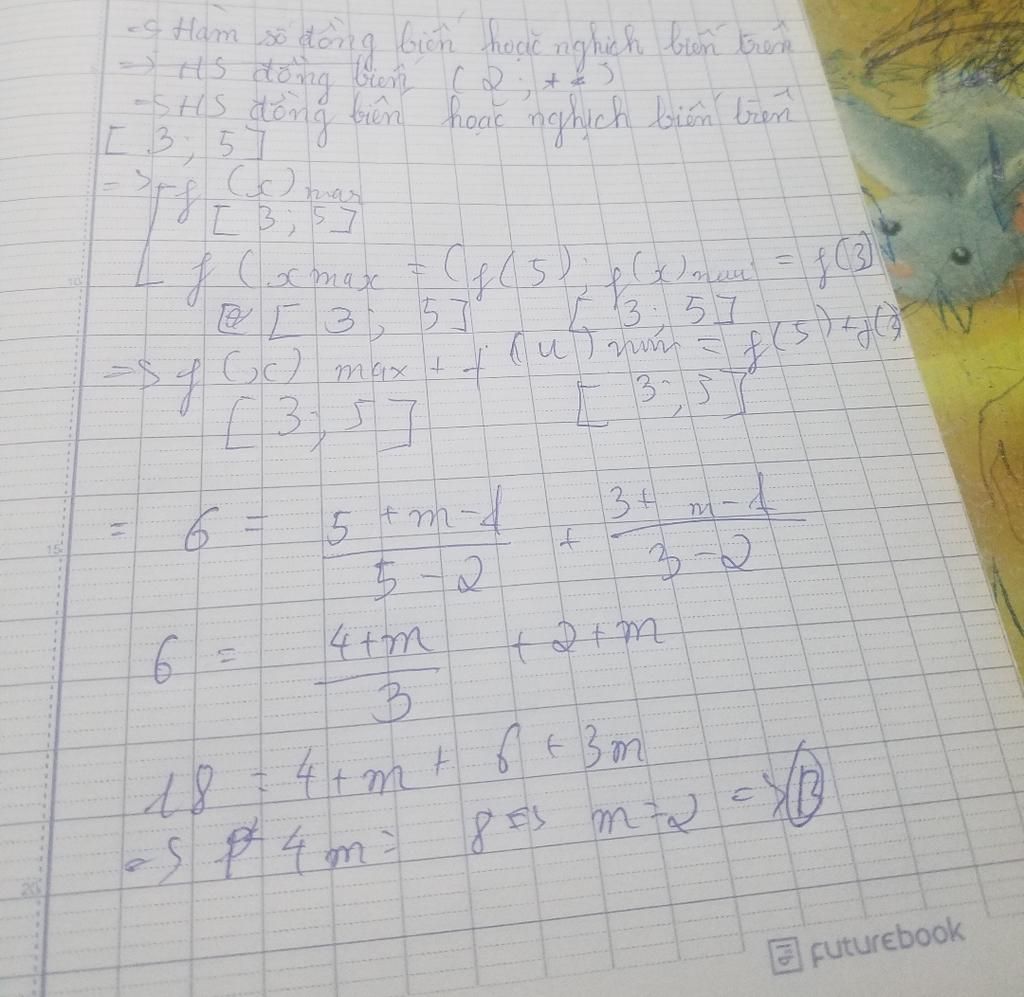 => Hàm số đồng biến hoặc nghịch biến trên
=> HS đồng biến (2; +∞)
=> HS đồng biến hoặc nghịch biến trên
[3; 5]
=> f(x) max
[3; 5]
f(x max = (f(5); f(x) = f(3)
[3; 5] [3; 5]
=> f(x) max + f = f(5) + f(3
[3; 5] [3; 5]
= 6 = \frac{5 + m - 1}{5 - 2} + \frac{3 + m - 1}{3 - 2}
6 = \frac{4 + m}{3} + 2 + m
18 = 4 + m + 6 + 3m
=> 4m = 8 => m = 2 => B
15
20
futurebook